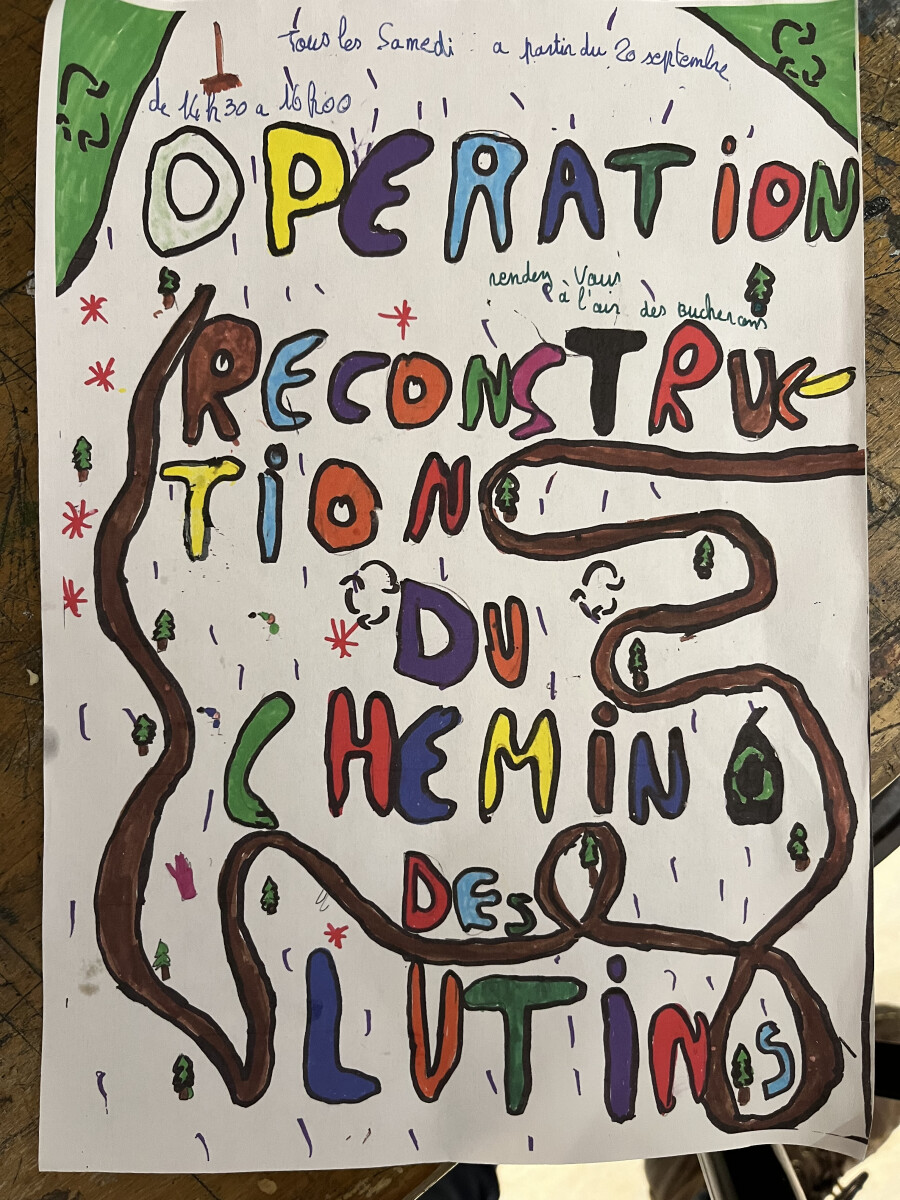 tous les Samedi a partir du 20 septembre
de 14h30 a 16h00
OPERATiON
rendez Vous
à l'air des bucherons
RECONSTRUC-
TiON
DU
CHEMiN
DES
LUTiNS